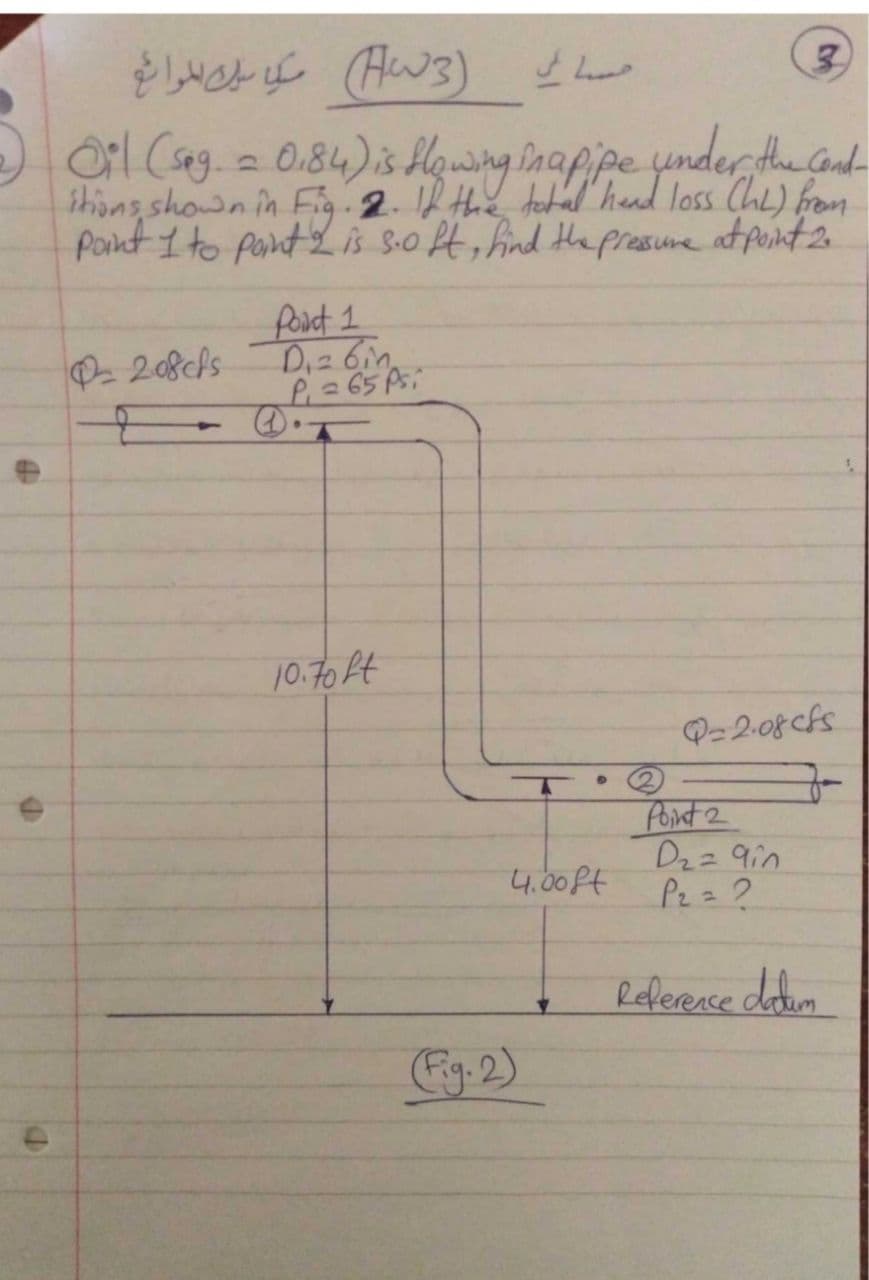 3
مسائل (HW3) ميكانيك الموائع
Oil (s.g. = 0.84) is flowing in a pipe under the Cond-
itions shown in Fig. 2. If the total head loss (hL) from
point 1 to point 2 is 3.0 ft, find the pressure at point 2.
Point 1
Q= 2.08cfs
D₁ = 6in
P₁ = 65 Psi
①
10.70 ft
Q=2.08 cfs
②
Point 2
D₂ = 9in
4.00ft
P₂ = ?
Reference datum
(Fig. 2)